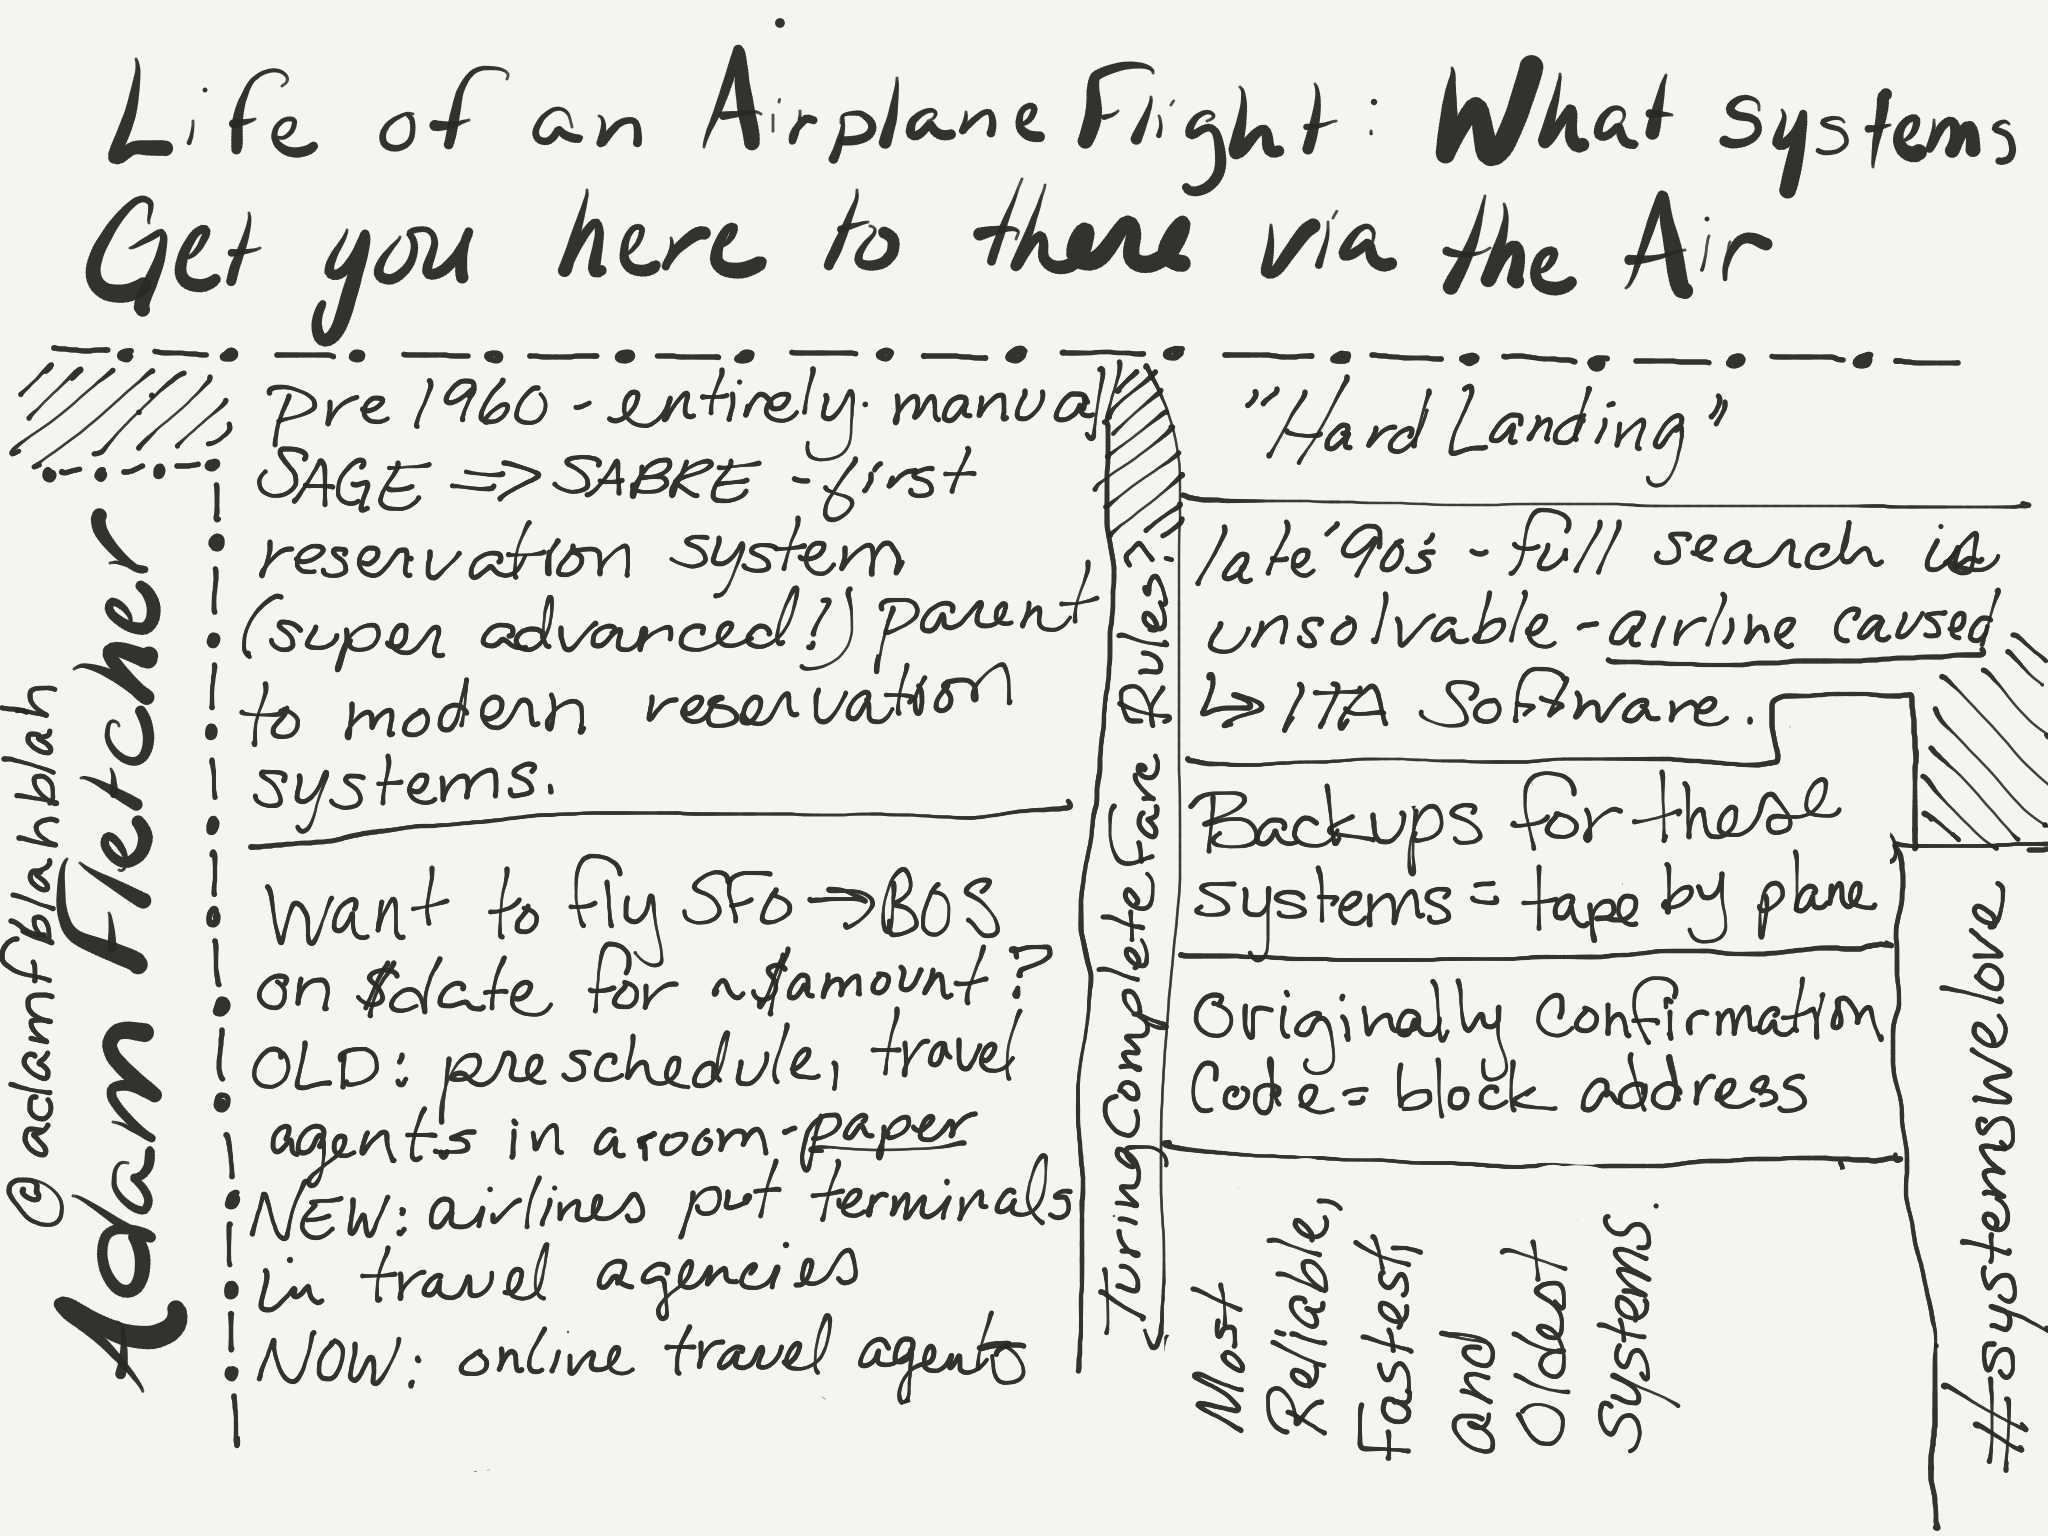 Life of an Airplane Flight: What systems
Get you here to there via the Air
@adamfblahblah
Adam Fletcher
Pre 1960 - entirely manual
SAGE => SABRE - first
reservation system
(super advanced!) parent
to modern reservation
systems.
Want to fly SFO → BOS
on $date for ~$amount?
OLD: preschedule, travel
agents in a room - paper
NEW: airlines put terminals
in travel agencies
NOW: online travel agents
Turing Complete Fare Rules?
"Hard Landing"
late '90s - full search is
unsolvable - airline caused
↳ ITA Software.
Backups for these
systems = tape by plane
Originally confirmation
Code = block address
Most
Reliable,
Fastest,
and
Oldest
Systems.
#systemswelove